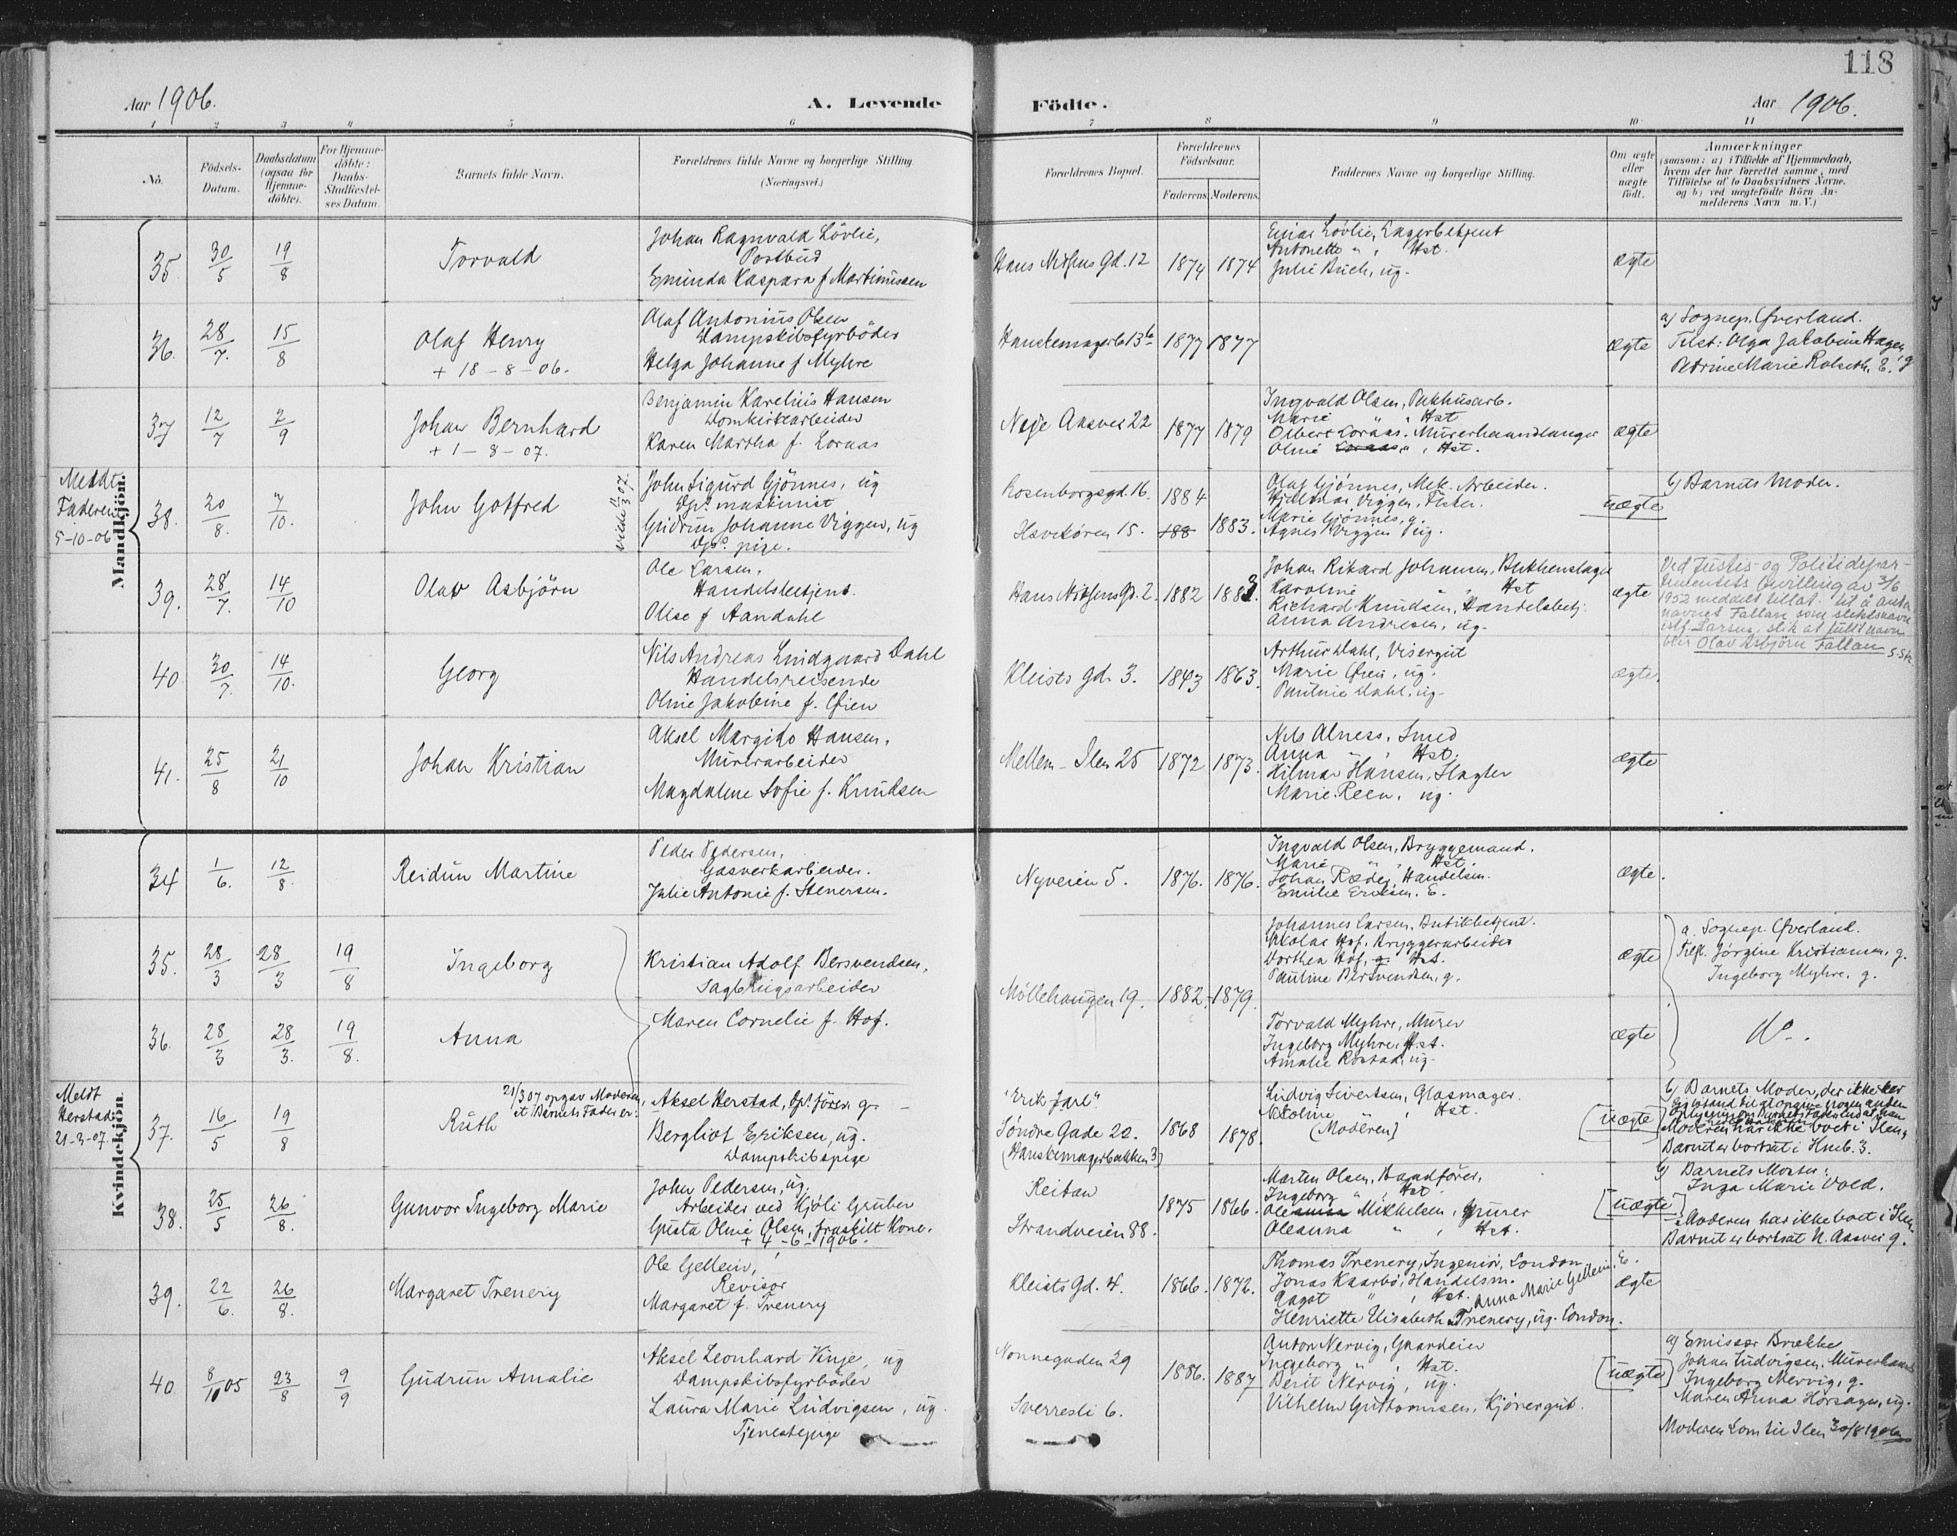 118
Aar 1906.
A. Levende Födte.
Aar 1906.
1 2 3 4 5 6 7 8 9 10 11
No.
Födsels-Datum.
Daabsdatum (ogsaa for Hjemme-döbte).
For Hjemme-döbte: Daabs-Stadfæstel-ses Datum.
Barnets fulde Navn.
Forældrenes fulde Navne og borgerlige Stilling.
(Næringsvei.)
Forældrenes Bopæl.
Forældrenes Födselsaar.
Faderens. Moderens.
Faddernes Navne og borgerlige Stilling.
Om ægte eller uægte födt.
Anmærkninger
(saasom: a) i Tilfælde af Hjemmedaab, hvem der har forrettet samme, med Tilföielse af to Daabsvidners Navne, og b) ved uægtefödte Börn An-melderens Navn m. V.)
Mandkjön.
35. 30/5 19/8 Torvald
Johan Ragnvald Lövlie,
Postbud
Eminda Kaspara f Martinussen
Hans Nissens Gd. 12 1874 1874
Einar Lövlie, Lagerbetjent
Antonette " , Hst.
Julie Buch, ug.
ægte
36. 28/7. 15/8 Olaf Henry
+ 18-8-06.
Olaf Antonius Olsen
Dampskibsfyrböder
Helga Johanne f Myhre
Hanskemagerb 13b 1877 1877
ægte
a) Sognep. Øverland.
Tilst: Olga Jakobine Hagen, g
Petrine Marie Rolseth, E.
37 12/7 2/9 Johan Bernhard
+ 1-8-07.
Benjamin Karelius Hansen
Domkirkearbeider
Karen Martha f. Loraas
Nedje Aasvei 22 1877 1879
Ingvald Olsen, Pakhusarb.
Marie " , Hst
Olbert Loraas, Murerhaandlanger
Oline Loraas " , Hst.
ægte
Meldt Faderen 5-10-06
38. 20/8. 7/10. John Gotfred
John Sigurd Gjönnes, ug
Dps. maskinist
Gudrun Johanne Viggen, ug
Dps. pige.
Rosenborgsgd. 16. 1884
Havskören 15. 188 1883.
Olaf Gjönnes, Mek. Arbeider.
Hjelmar Viggen, Fisker.
Marie Gjönnes, g.
Agnes Viggen ug.
uægte
b) Barnets Moder.
39. 28/7. 14/10 Olav Asbjörn
Ole Larsen,
Handelsbetjent.
Olise f Aandahl
Hans Nissens Gd. 2. 1882 1883.
Johan Rikard Johansen, Bukkenslager
Karoline " , Hst
Richard Knudsen, Handelsbetj.
Anna Andresen, ug.
ægte
Ved Justis- og Politidepar-
tmentets bevilling av 3/6
1952 meddelt tillat. til å anta
navnet Fallan som slektsnavn
istf. Larsen, slik at fullt navn
blir Olav Asbjörn Fallan
40 30/7. 14/10. Georg
Nils Andreas Lindgaard Dahl
Handelsreisende
Oline Jakobine f. Öien
Kleists gd. 3. 1843 1863.
Arthur Dahl, Visergut
Marie Öien, ug.
Pauline Dahl, ug.
ægte.
41. 25/8 21/10 Johan Kristian
Aksel Margido Hansen.
Murerarbeider
Magdalene Sofie f. Knudsen
Mellem-Ilen 25 1872 1873.
Nils Alness, Smed
Anna " , Hst.
Hilmar Hansen, Slagter
Marie Reen, ug.
ægte
Kvindekjön.
34 1/6. 12/8. Reidun Martine
Peder Pedersen,
Gasverkarbeider.
Julie Antonie f. Stenersen.
Nyveien 5. 1876. 1876.
Ingvald Olsen, Bryggemand.
Marie " , Hst
Johan Ræder, Handelsm.
Emilie Eriksen. E.
ægte.
35. 28/3 28/3 19/8 Ingeborg
Kristian Adolf Bersvendsen,
Sagbrugsarbeider
Maren Cornelie f. Hof.
Möllehaugen 19. 1882 1879.
Johannes Larsen, Butikbetjent.
Nikolai Hof, Bryggerarbeider
Dorthea Hof, Hst.
Pauline Bersvendsen, g.
ægte
a. Sognep. Øverland.
Tilst. Jörgine Kristiansen, g.
Ingeborg Myhre, g.
36. 28/3 28/3. 19/8. Anna
Torvald Myhre, Murer
Ingeborg Myhre, Hst.
Amalie Rostad, ug.
ægte
Do.
Meldt Herstad 21-3-07.
37. 16/5 19/8 Ruth
21/3 07 opgav Moderen,
at Barnets Fader er:
Aksel Herstad, Dps. förer g.
Bergliot Eriksen, ug.
Dampskibspige
"Erik Jarl"
Söndre Gade 22.
(Hanskemagerbakken 3) 1868 1878.
Ludvig Sivertsen, Glasmager.
Nikoline " , Hst.
(Moderen)
[uægte]
b) Barnets Moder, der ikke
Moderen har ikke boet i Ilen,
Barnet er bortsat i Hmb. 3.
38. 25/5 26/8. Gunvor Ingeborg Marie
John Pedersen, ug.
Arbeider ved Kjöli Gruber
Gusta Oline Olsen, fraskilt Kone.
+ 4-6-1906.
Reitan
Strandveien 88. 1875 1866.
Martin Olsen, Baadförer,
Ingeborg " , Hst
Ole Mikkelsen, Murer
Oleanna " , Hst.
[uægte]
b) Barnets Moster:
Inga Marie Vold.
Moderen har ikke boet i Ilen
Barnet er bortsat N. Aasvei 9.
39. 22/6. 26/8. Margaret Trenery
Ole Gellein,
Revisor
Margaret f. Trenery
Kleists Gd. 4. 1866. 1872.
Thomas Trenery, Ingeniör, London, E.
Jonas Kaarbö, Handelsm.
Dagot " , Hst. Anna Marie Gellein,
Henriette Elisabeth Trenery, ug. London.
ægte
40 8/10 05 23/8 9/9 Gudrun Amalie
Aksel Leonhard Vinje, ug
Dampskibsfyrböder
Laura Marie Ludvigsen, ug.
Tjenestepige
Nonnegaden 29
Sverresli 6. 1886. 1887
Anton Nervig, Gaardeier
Ingeborg " , Hst.
Berit Nervig, ug.
Vilhelm Guttormsen, Kjöregut.
[uægte]
a) Emissær Brække
Johan Ludvigsen, Murerhaand.
Ingeborg Nervig, g.
Maren Anna Horsagen, ug.
Moderen kom til Ilen 30/8 1906